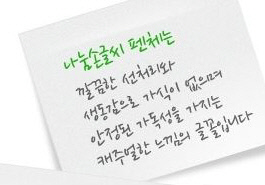 나눔손글씨 펜체는
깔끔한 선처리와
생동감으로 가식이 없으며
안정된 가독성을 가지는
캐주얼한 느낌의 글꼴입니다